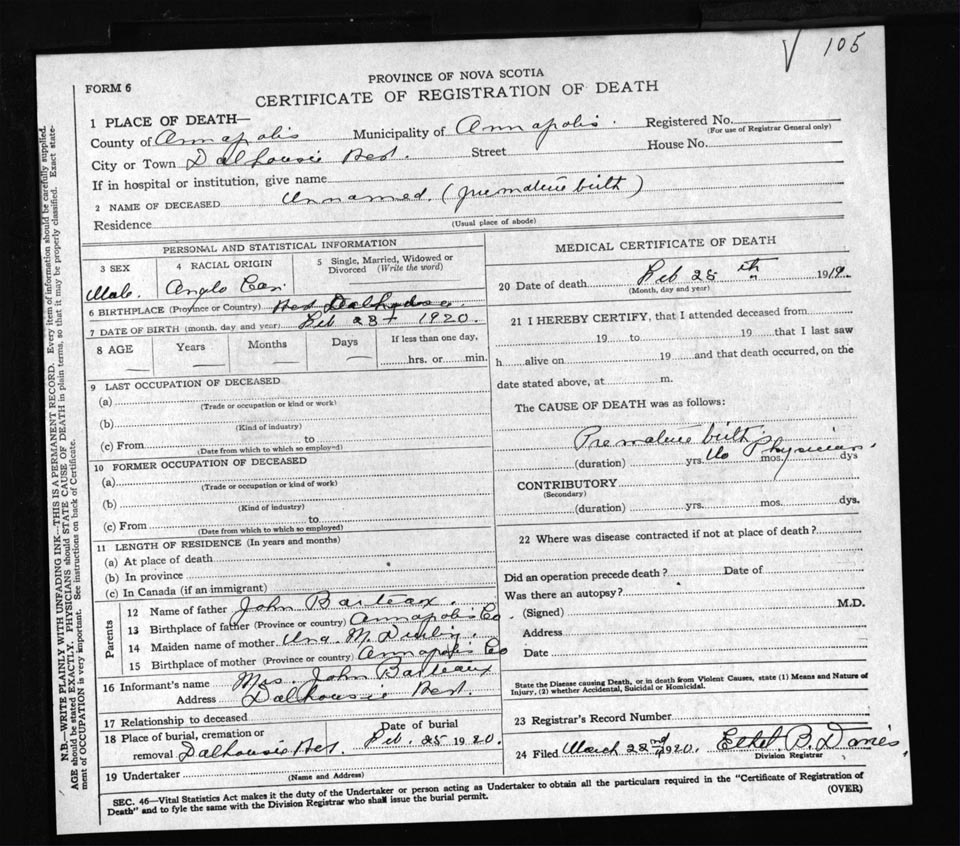 √ 105
FORM 6
PROVINCE OF NOVA SCOTIA
CERTIFICATE OF REGISTRATION OF DEATH
1 PLACE OF DEATH—
County of Annapolis Municipality of Annapolis. Registered No.
(For use of Registrar General only)
City or Town Dalhousie Street House No.
If in hospital or institution, give name
2 NAME OF DECEASED Unnamed. (premature birth)
Residence
(Usual place of abode)
PERSONAL AND STATISTICAL INFORMATION
3 SEX 4 RACIAL ORIGIN 5 Single, Married, Widowed or Divorced (Write the word)
Male. Anglo
6 BIRTHPLACE (Province or Country)
7 DATE OF BIRTH (month, day and year) Feb 1920.
8 AGE Years Months Days If less than one day,
hrs. or min.
9 LAST OCCUPATION OF DECEASED
(a)
(Trade or occupation or kind or work)
(b)
(Kind of industry)
(c) From to
(Date from which to which so employed)
10 FORMER OCCUPATION OF DECEASED
(a)
(Trade or occupation or kind of work)
(b)
(Kind of industry)
(c) From to
(Date from which to which so employed)
11 LENGTH OF RESIDENCE (In years and months)
(a) At place of death
(b) In province
(c) In Canada (if an immigrant)
Parents
12 Name of father John Barteaux.
13 Birthplace of father (Province or country) Annapolis Co.
14 Maiden name of mother Una M.
15 Birthplace of mother (Province or country) Annapolis Co
16 Informant's name Mrs. John Barteaux
Address Dalhousie
17 Relationship to deceased
18 Place of burial, cremation or removal Dalhousie Date of burial Feb. 25 1920.
19 Undertaker
(Name and Address)
MEDICAL CERTIFICATE OF DEATH
20 Date of death Feb 25th 191
(Month, day and year)
21 I HEREBY CERTIFY, that I attended deceased from
19 to 19 that I last saw
h alive on 19 and that death occurred, on the
date stated above, at m.
The CAUSE OF DEATH was as follows:
Premature birth.
No Physician.
(duration) yrs. mos. dys
CONTRIBUTORY
(Secondary)
(duration) yrs. mos. dys.
22 Where was disease contracted if not at place of death?
Did an operation precede death? Date of
Was there an autopsy?
(Signed) M.D.
Address
Date
State the Disease causing Death, or in death from Violent Causes, state (1) Means and Nature of
Injury, (2) whether Accidental, Suicidal or Homicidal.
23 Registrar's Record Number
24 Filed March 22nd 1920. Ethel B.
Division Registrar
SEC. 46—Vital Statistics Act makes it the duty of the Undertaker or person acting as Undertaker to obtain all the particulars required in the "Certificate of Registration of
Death" and to fyle the same with the Division Registrar who shall issue the burial permit.
(OVER)
N.B.—WRITE PLAINLY WITH UNFADING INK—THIS IS A PERMANENT RECORD. Every item of information should be carefully supplied.
AGE should be stated EXACTLY. PHYSICIANS should STATE CAUSE OF DEATH in plain terms, so that it may be properly classified. Exact state-
ment of OCCUPATION is very important. See instructions on back of Certificate.